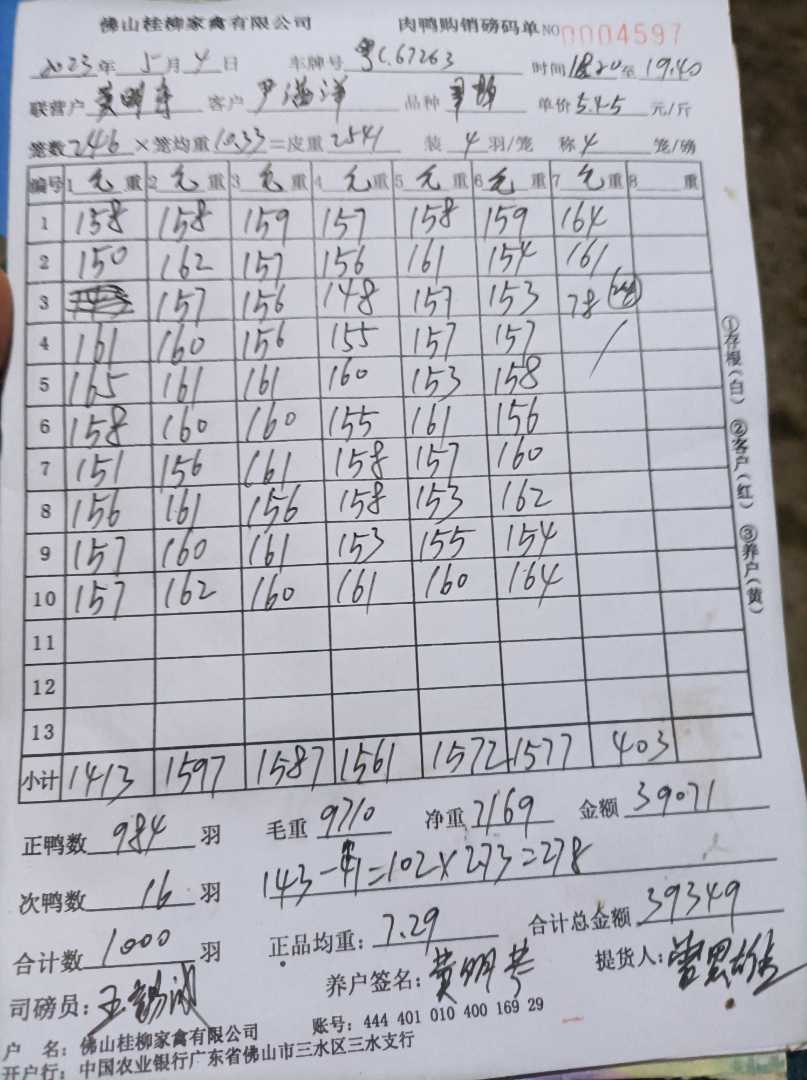 佛山桂柳家禽有限公司 肉鸭购销磅码单 NO 0004597
2023年 5月 4日 车牌号 粤C.67263 时间 18.20 至 19.40
联营户 客户 尹海洋 品种 单价 5.45 元/斤
笼数 246 × 笼均重 10.33 = 皮重 2541 装 4 羽/笼 称 4 笼/磅
编号 1 毛 重 2 毛 重 3 毛 重 4 毛 重 5 毛 重 6 毛 重 7 毛 重 8 重
1 158 158 159 157 158 159 164
2 150 162 157 156 161 154 161
3 157 156 148 157 153 78
4 161 160 156 155 157 157
5 165 161 161 160 153 158
6 158 160 160 155 161 156
7 151 156 161 158 157 160
8 156 161 156 158 153 162
9 157 160 161 153 155 154
10 157 162 160 161 160 164
11
12
13
小计 1413 1597 1587 1561 1572 1577 403
①存根(白) ②客户(红) ③养户(黄)
正鸭数 984 羽 毛重 9710 净重 7169 金额 39071
次鸭数 16 羽 143-41=102×273=278
合计数 1000 羽 正品均重: 7.29 合计总金额 39349
司磅员: 养户签名: 提货人:
户 名: 佛山桂柳家禽有限公司 账号: 444 401 010 400 169 29
开户行: 中国农业银行广东省佛山市三水区三水支行